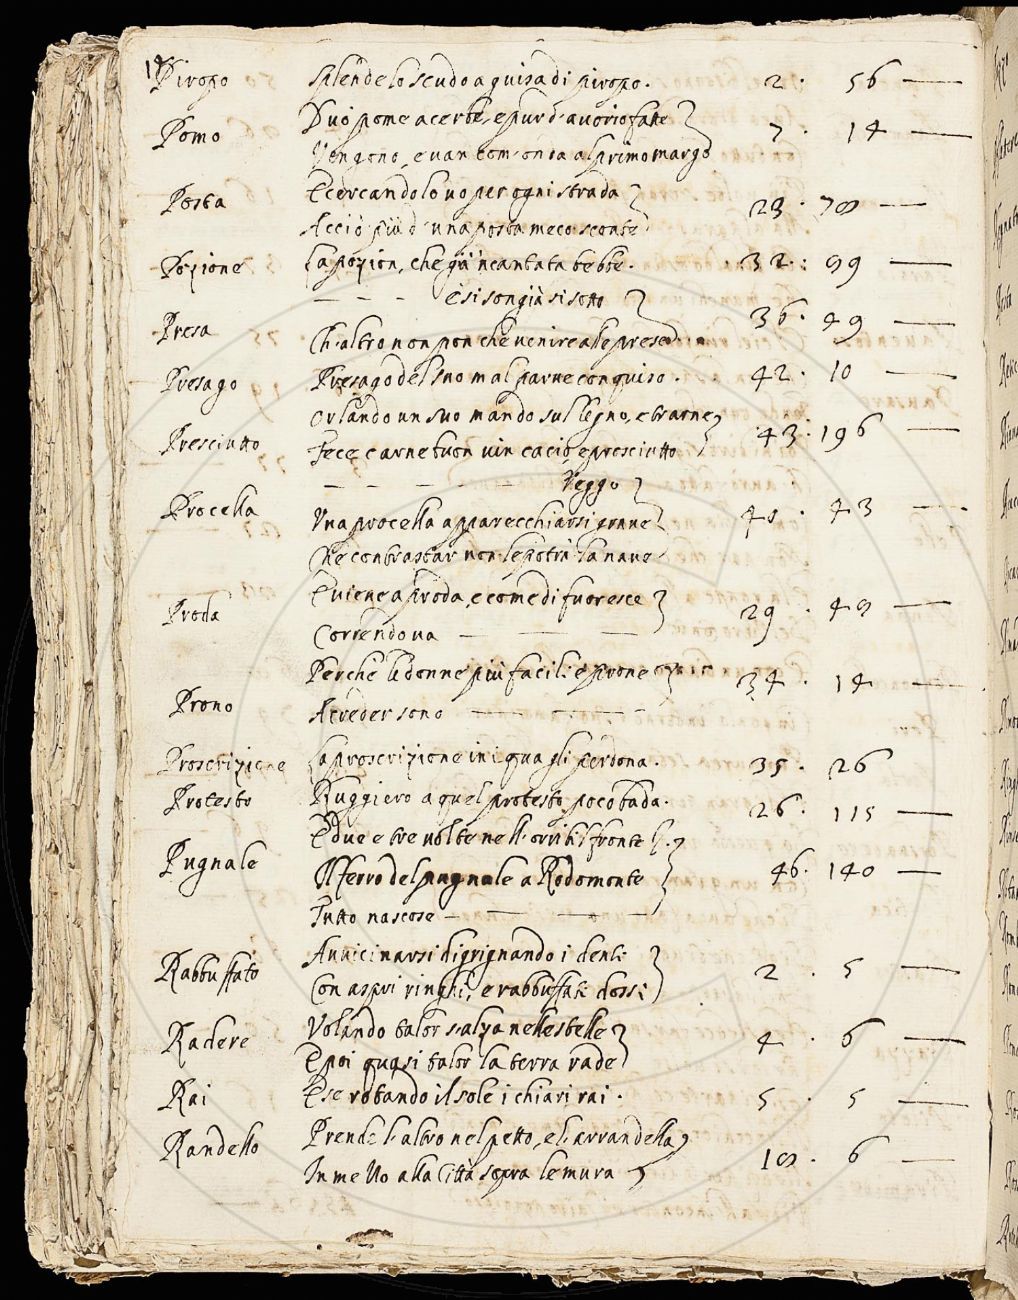 Piropo Splende lo scudo a guisa di piropo. 2. 56 —
Duo pome acerbe, e pur d'avorio fatte
Pomo 7. 14 —
Vengono, e van com'onda al primo margo
E cercandolo vo per ogni strada
Posta 23. 78 —
Acciò più d'una posta meco sconte
Pozione La pozion, che già 'ncantata bebbe. 32. 99 —
— — — E si son già si sotto
Presa 36. 49 —
Ch'altro non pon che venire alle prese
Presago Presago del suo mal parve conquiso. 42. 10 —
Orlando un suo mandò sul legno, e trarne
Presciutto 43. 196 —
Fece carne buon vin cacio, e presciutto
— — — — Veggo
Procella Una procella apparecchiarsi grave 43 —
Che contrastar non le potrà la nave
E viene a proda, e come di fuor esce
Proda 29. 48 —
Correndo va — — —
Perchè le donne più facili e prone
Prono 34. 14 —
A creder sono — — —
Proscrizione La proscrizione iniqua gli perdona. 35. 26
Protesto Ruggiero a quel protesto poco bada. 26. 115 —
E due e tre volte nell'orribil fronte
Pugnale Il ferro del pugnale a Rodomonte 46. 140 —
Tutto nascose — — — —
Avvicinarsi digrignando i denti
Rabbuffato 2. 5 —
Con aspri ringhi, e rabbuffati dossi
Volando talor s'alza nelle stelle
Radere 4. 6 —
E poi quasi talor la terra rade
Rai E se rotando il sole i chiari rai. 5. 5 —
Prende l'altro nel petto, e l'arrandella
Randello 18. 6 —
In mezzo alla Città sopra le mura